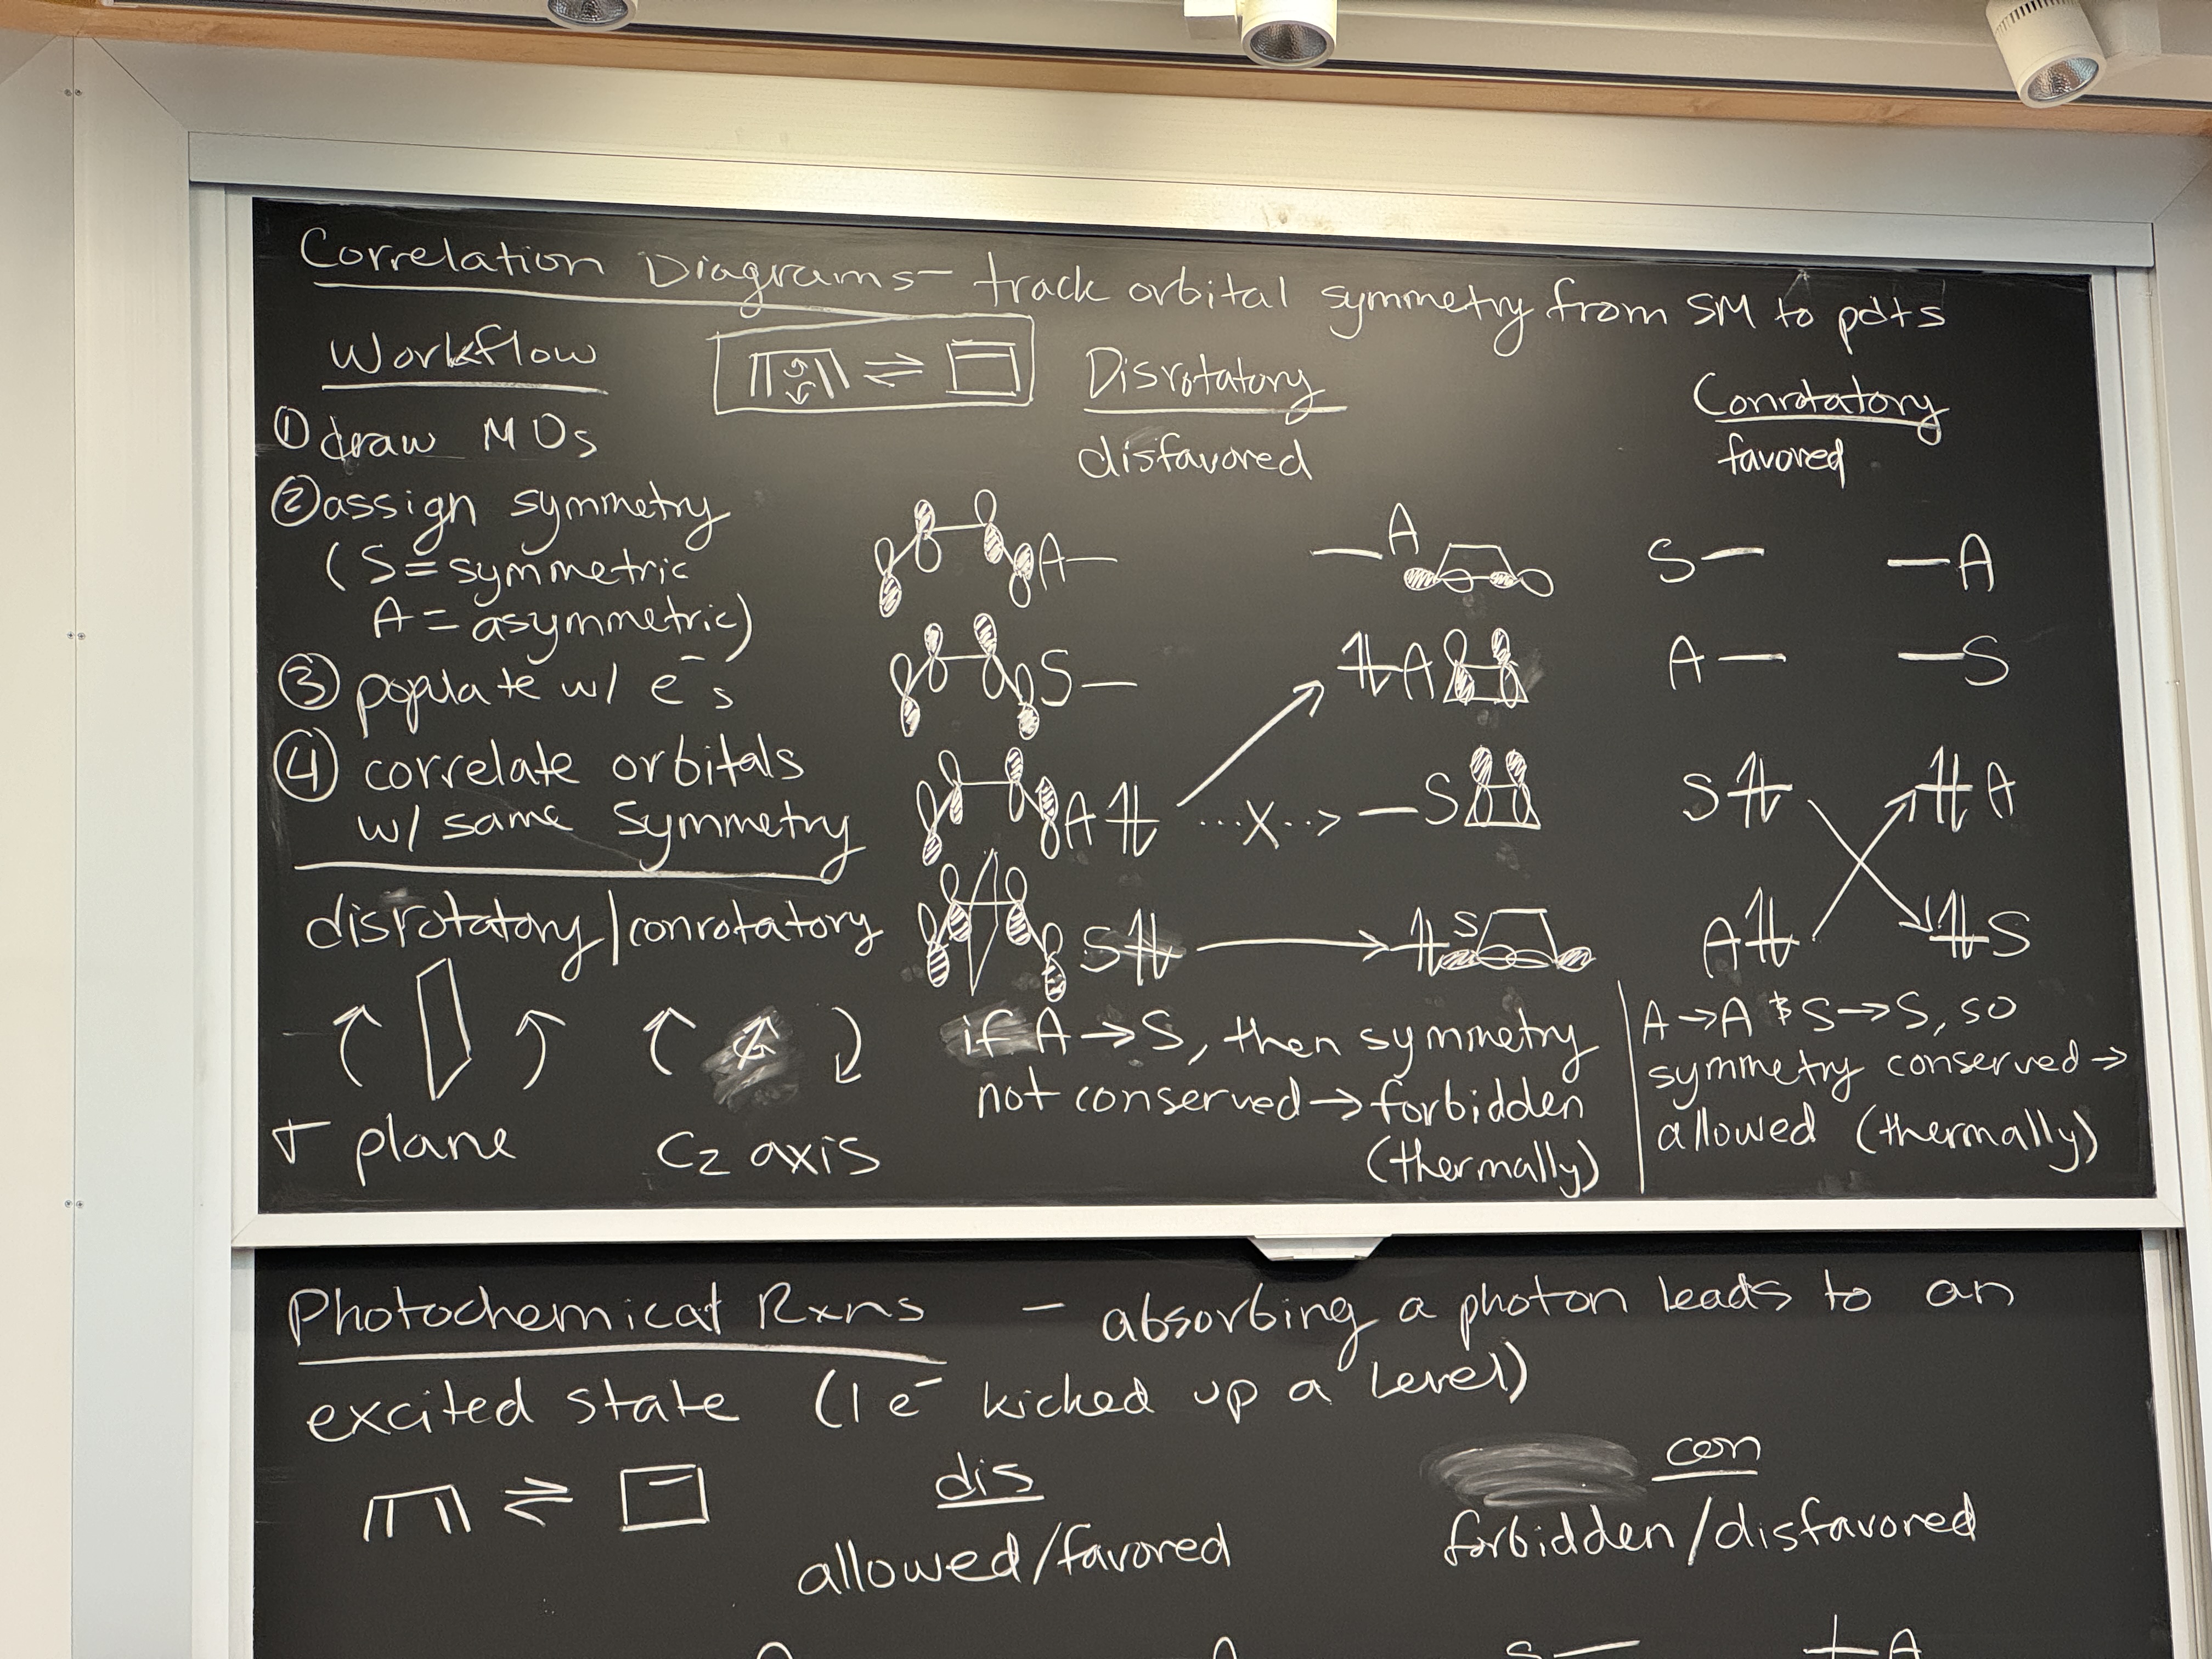 Correlation Diagrams - track orbital symmetry from SM to pdts
Workflow
① draw MOs
② assign symmetry
(S = symmetric
A = asymmetric)
③ populate w/ e⁻s
④ correlate orbitals
w/ same symmetry
disrotatory | conrotatory
σ plane
C2 axis
Disrotatory
disfavored
A
A
S
A
A
X
S
S
S
if A → S, then symmetry
not conserved → forbidden
(thermally)
Conrotatory
favored
S A
A S
S A
A S
A → A & S → S, so
symmetry conserved →
allowed (thermally)
Photochemical Rxns - absorbing a photon leads to an
excited state (1 e⁻ kicked up a level)
dis
allowed/favored
con
forbidden/disfavored
S A